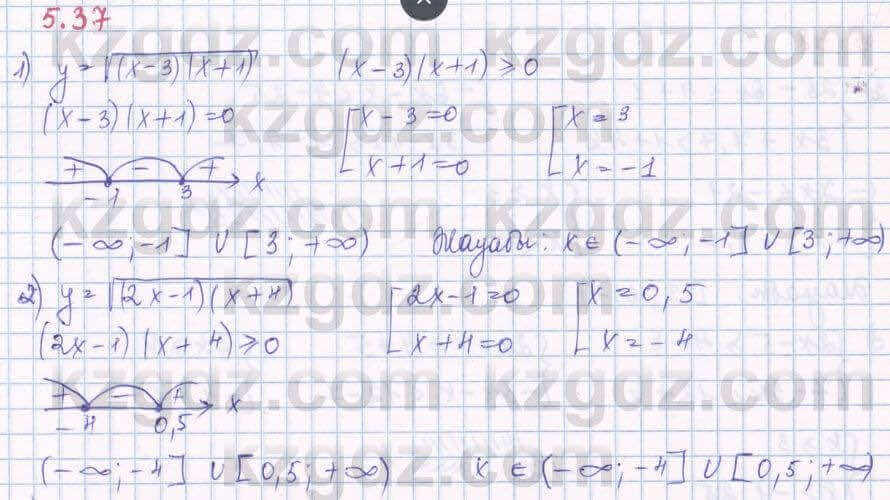 5.37
1) y = √(x-3)(x+1)    (x-3)(x+1) ≥ 0
(x-3)(x+1)=0    [x-3=0    [x=3
x+1=0    x=-1
+ - + x
-1 3
(-∞;-1] ∪ [3;+∞)    Жауабы: x∈(-∞;-1] ∪ [3;+∞)
2) y = √(2x-1)(x+4)    [2x-1=0    [x=0,5
(2x-1)(x+4) ≥ 0    x+4=0    x=-4
+ - + x
-4 0,5
(-∞;-4] ∪ [0,5;+∞)    x ∈ (-∞;-4] ∪ [0,5;+∞)
kzgdz.com kzgdz.com
kzgdz.com kzgdz.com
kzgdz.com kzgdz.com
kzgdz.com kzgdz.com
kzgdz.com kzgdz.com
kzgdz.com